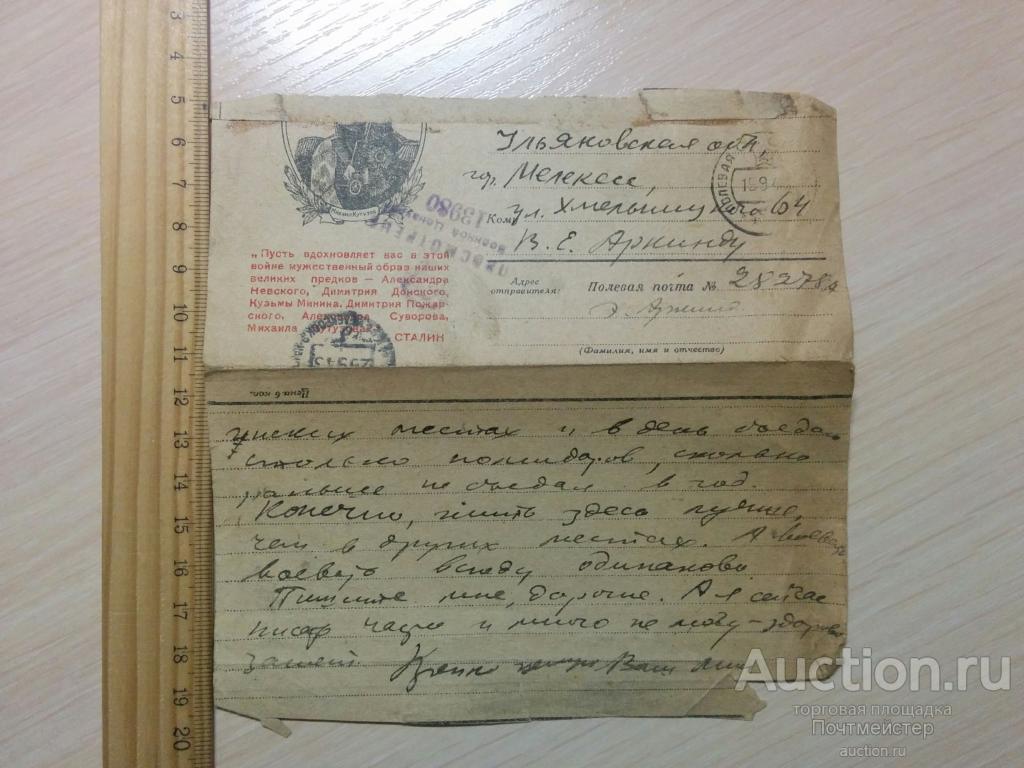 Ульяновская обл,
гор. Мелекесс,
Кому ул. Хмельницкого 64
В. Е. Аркинду
Адрес отправителя:
Полевая почта № 28278
(Фамилия, имя и отчество)
Михаил Кутузов
ПРОСМОТРЕНО
Военной Цензурой
13980
ПОЛЕВАЯ
„Пусть вдохновляет вас в этой
войне мужественный образ наших
великих предков – Александра
Невского, Димитрия Донского,
Кузьмы Минина, Димитрия Пожар-
ского, Александра Суворова,
Михаила Кутузова"
СТАЛИН
Цена 6 коп.
местах и в день съедаю
столько помидоров, сколько
раньше не съедал в год.
Конечно, жить здесь лучше,
чем в других местах. А
воевать всюду одинаково
Пишите мне, дорогие. А я сейчас
часто и много не могу – здорово
занят. Ваш
3
4
5
6
7
8
9
10
11
12
13
14
15
16
17
18
19
20
Auction.ru
торговая площадка
Почтмейстер
auction.ru